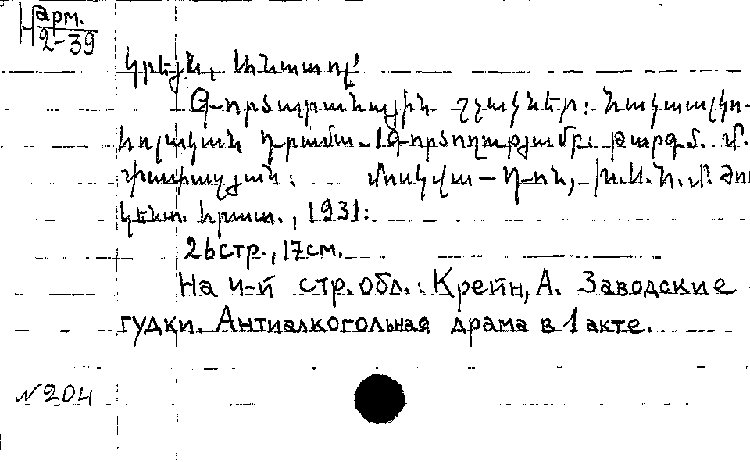 Н арм.
2-39
Կրեյն, Անատոլ
Գործարանային շչակներ: Հակաալկո-
հոլական դրամա 1 գործողությամբ: Թարգմ. Մ.
Փափազյան: Մոսկվա - Դ-ոն,
կենտ. հրատ., 1931:
26 стр., 17 см.
На 4-й стр. обл.: Крейн, А. Заводские
гудки. Антиалкогольная драма в 1 акте.
№ 204